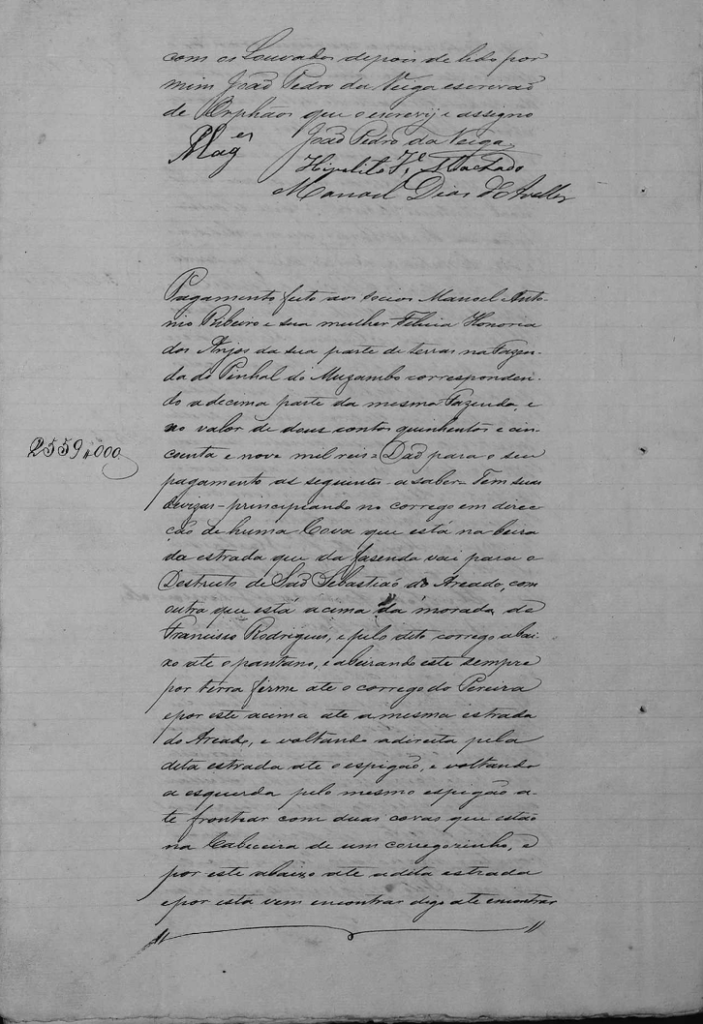 com os Louvados depois de lido por
mim João Pedro da Veiga escrivaõ
de Orphãos que o escrevij e assigno
Mag.es João Pedro da Veiga
Hipolito Je. Machado
Manoel Dias d'Avellar
Pagamento feito aos socios Manoel Anto-
nio Ribeiro e sua mulher Felicia Honoria
dos Anjos da sua parte de terras na Fazen-
da do Pinhal do Muzambo corresponden-
do a decima parte da mesma Fazenda, e
no valor de dous contos quinhentos e cin-
2559,000
coenta e nove mil reis = Daõ para o seu
pagamento as seguintes - a saber - Tem suas
devizas - principiando no corrego em direc-
caõ de huma Cova que está na beira
da estrada que da fasenda vai para o
Destructo de Saõ Sebastiaõ do Areado, com
outra que está acima da morada de
Francisco Rodrigues, e pelo dito corrego abai-
xo até o pantano, e abeirando este sempre
por terra firme até o corrego do Pereira
e por este acima até a mesma estrada
do Areado, e voltando a direita pela
dita estrada até o espigão, e voltando
a esquerda pelo mesmo espigão a-
te frontear com duas covas que estão
na Cabeceira de um corregozinho, e
por este abaixo até a dita estrada
e por esta vem encontrar digo até encontrar